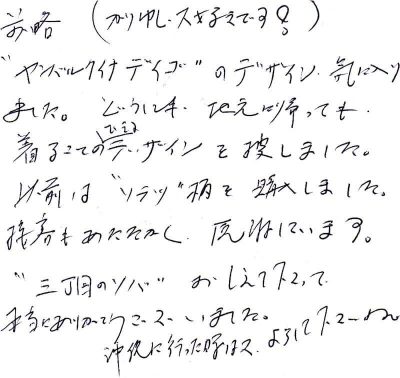 前略 (かりゆし大好きです!)
"ヤンバルクイナデイゴ"のデザイン、気に入り
ました。どうにも、地元に帰っても、
着ることのできるデザインを捜しました。
以前は"ソテツ"柄を購入しました。
接客もあたたかく、感謝しています。
"三丁目のソバ"おしえて下さって
本当にありがとうございました。
沖縄に行った時は又、よろしく下さいね